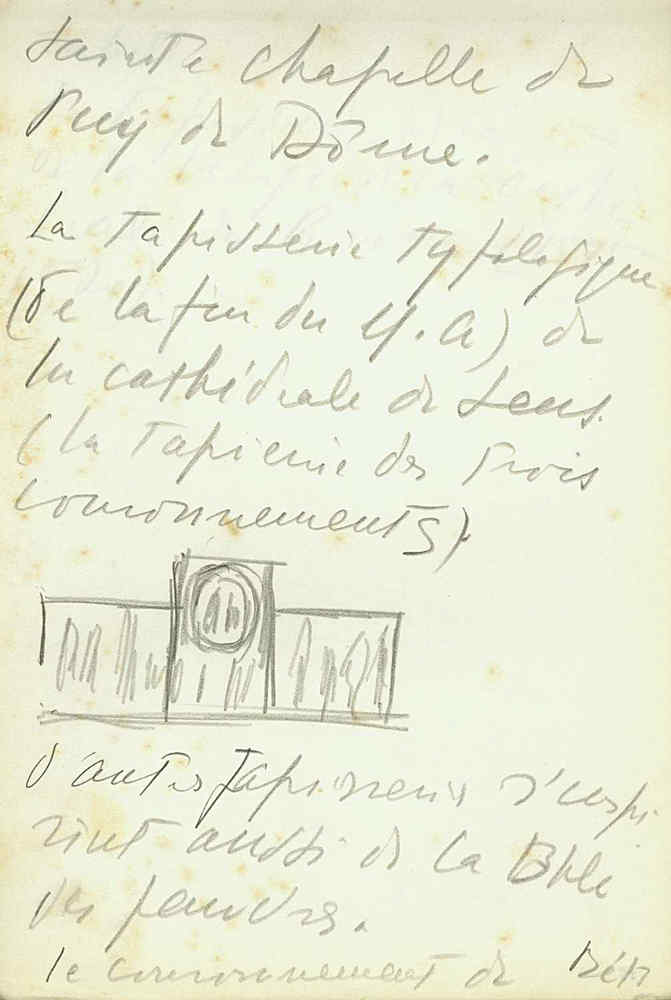 Sainte Chapelle de
Puy de Dôme.
La Tapisserie typologique
(de la fin du M.A) de
la cathédrale de Sens.
(la Tapisserie des Trois
couronnements).
D'autres Tapisseries s'inspi
rent aussi de la Bible
des pauvres.
le couronnement de